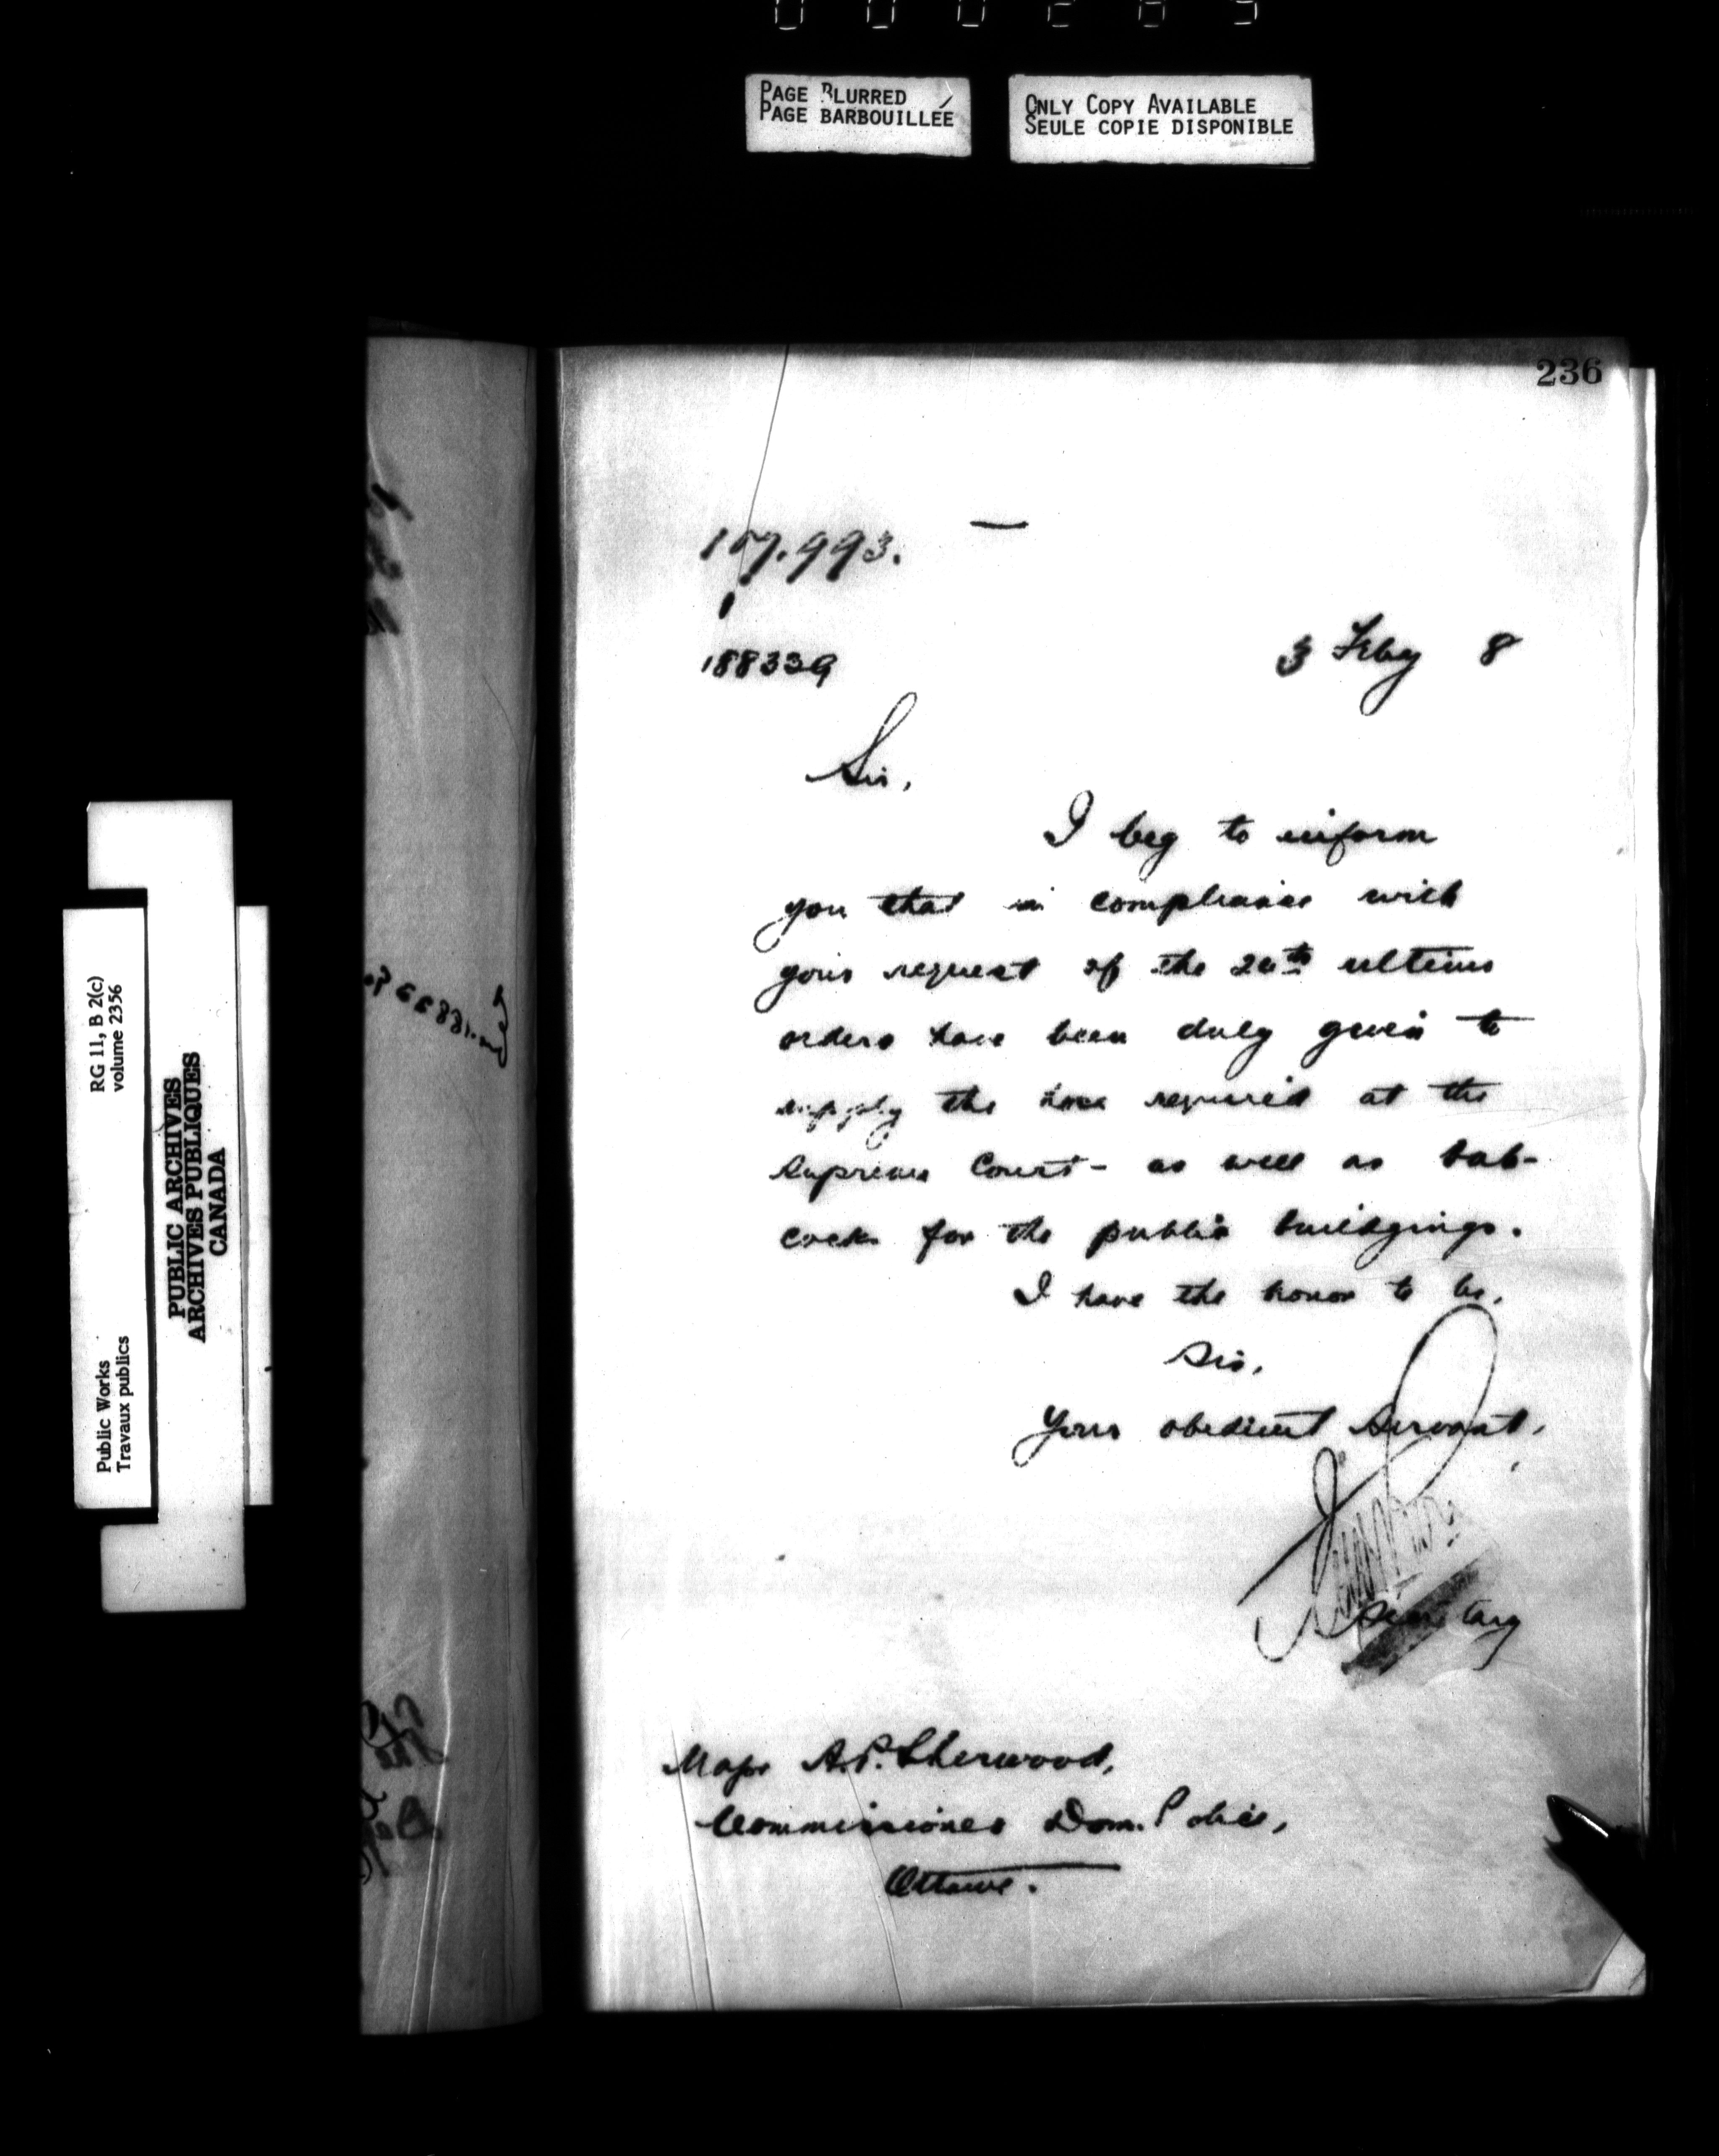 PAGE BLURRED
PAGE BARBOUILLÉE
ONLY COPY AVAILABLE
SEULE COPIE DISPONIBLE
236
157.993.
188339
3 Feby 8
Sir,
I beg to inform
you that in compliance with
your request of the ultimo
orders have been duly given to
supply the hose required at the
Supreme Court - as well as bab-
cocks for the public buildgings.
I have the honor to be,
Sir,
Your obedient Servant,
Secretary
Major A.P. Sherwood,
Commissioner Dom. Police,
Ottawa.
RG 11, B 2(c)
volume 2356
Public Works
Travaux publics
PUBLIC ARCHIVES
ARCHIVES PUBLIQUES
CANADA